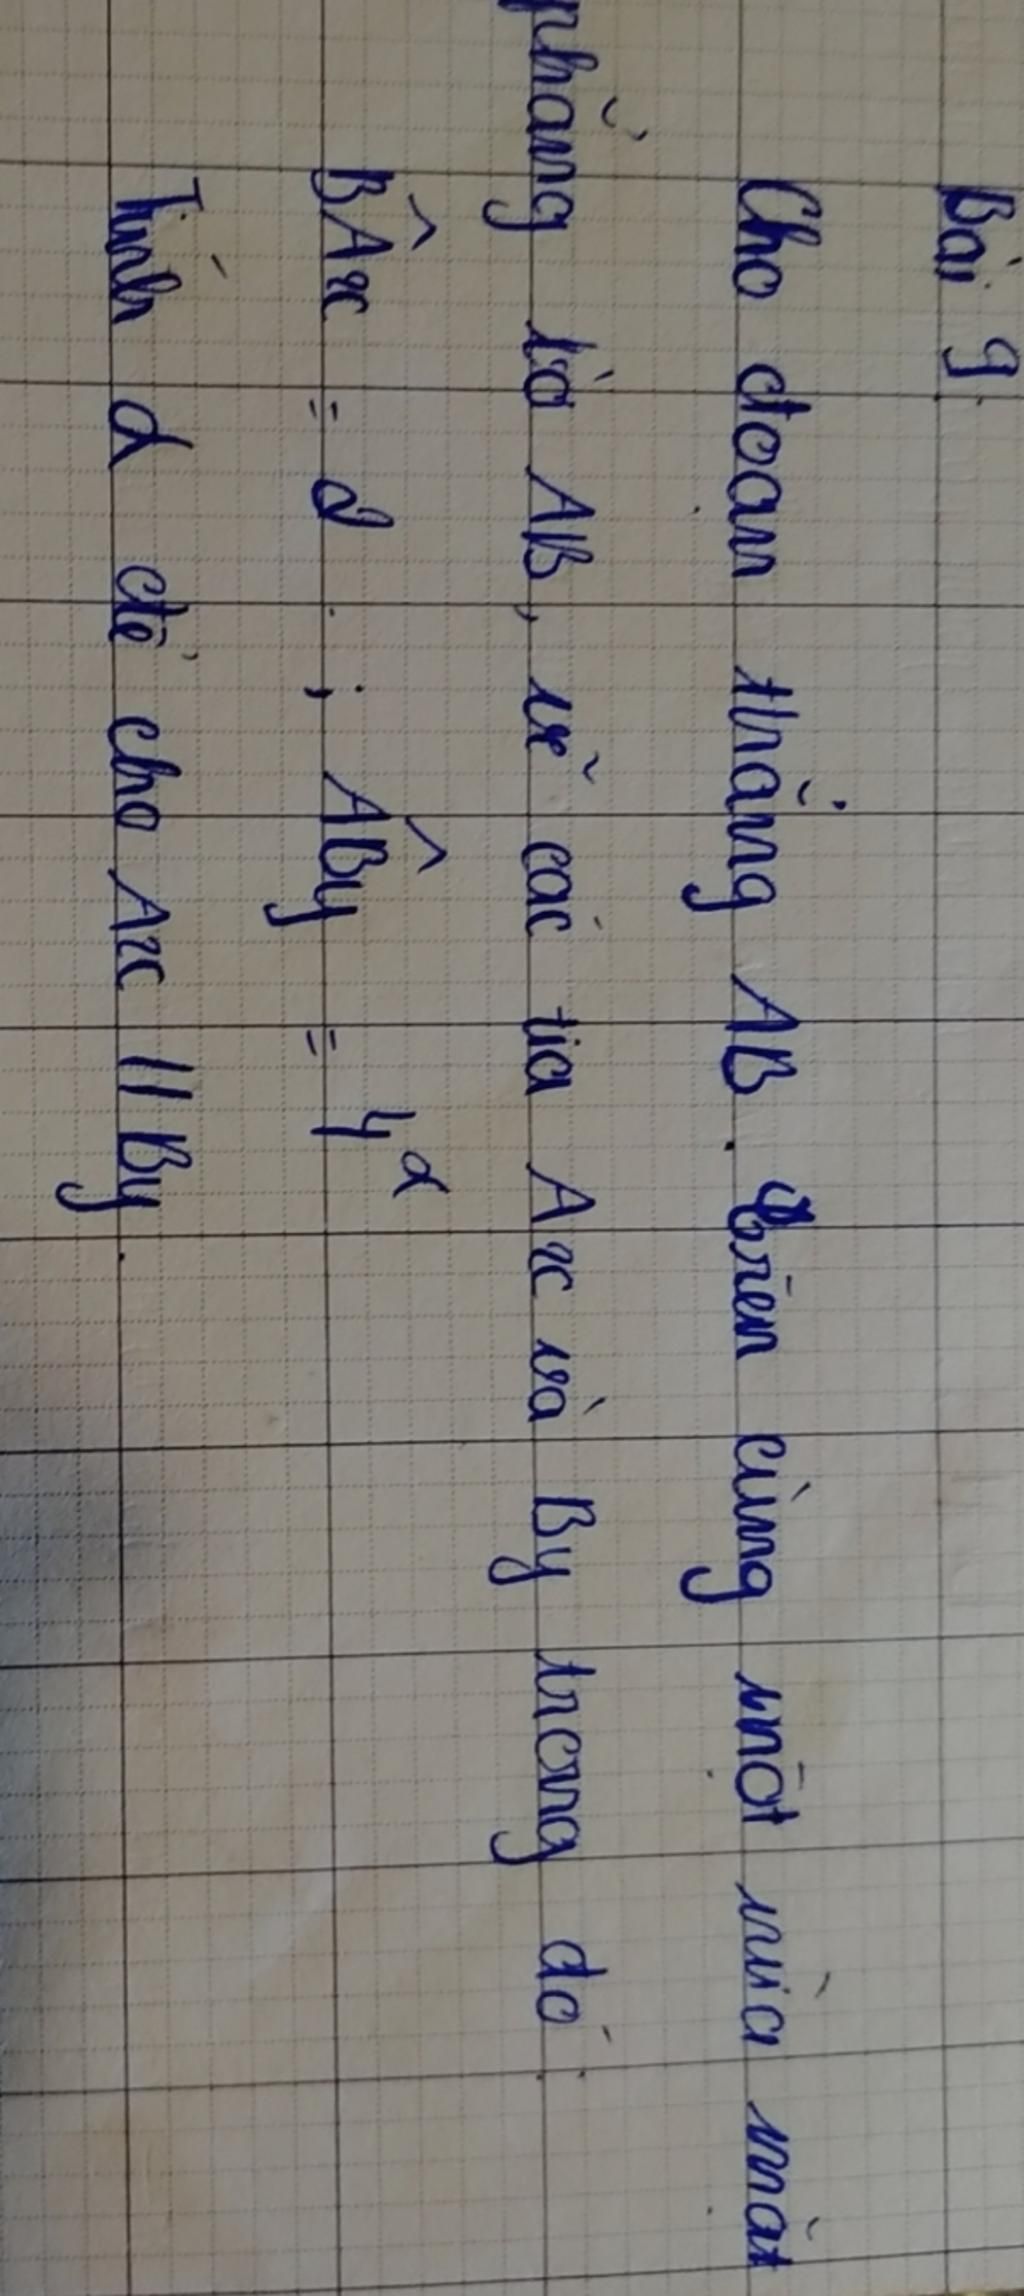 Bài 9.
Cho đoạn thẳng AB. Trên cùng một nửa mặt
phẳng bờ AB, vẽ các tia Ax và By trong đó:
BÂx = α ; AB̂y = 4α
Tính α để cho Ax // By.